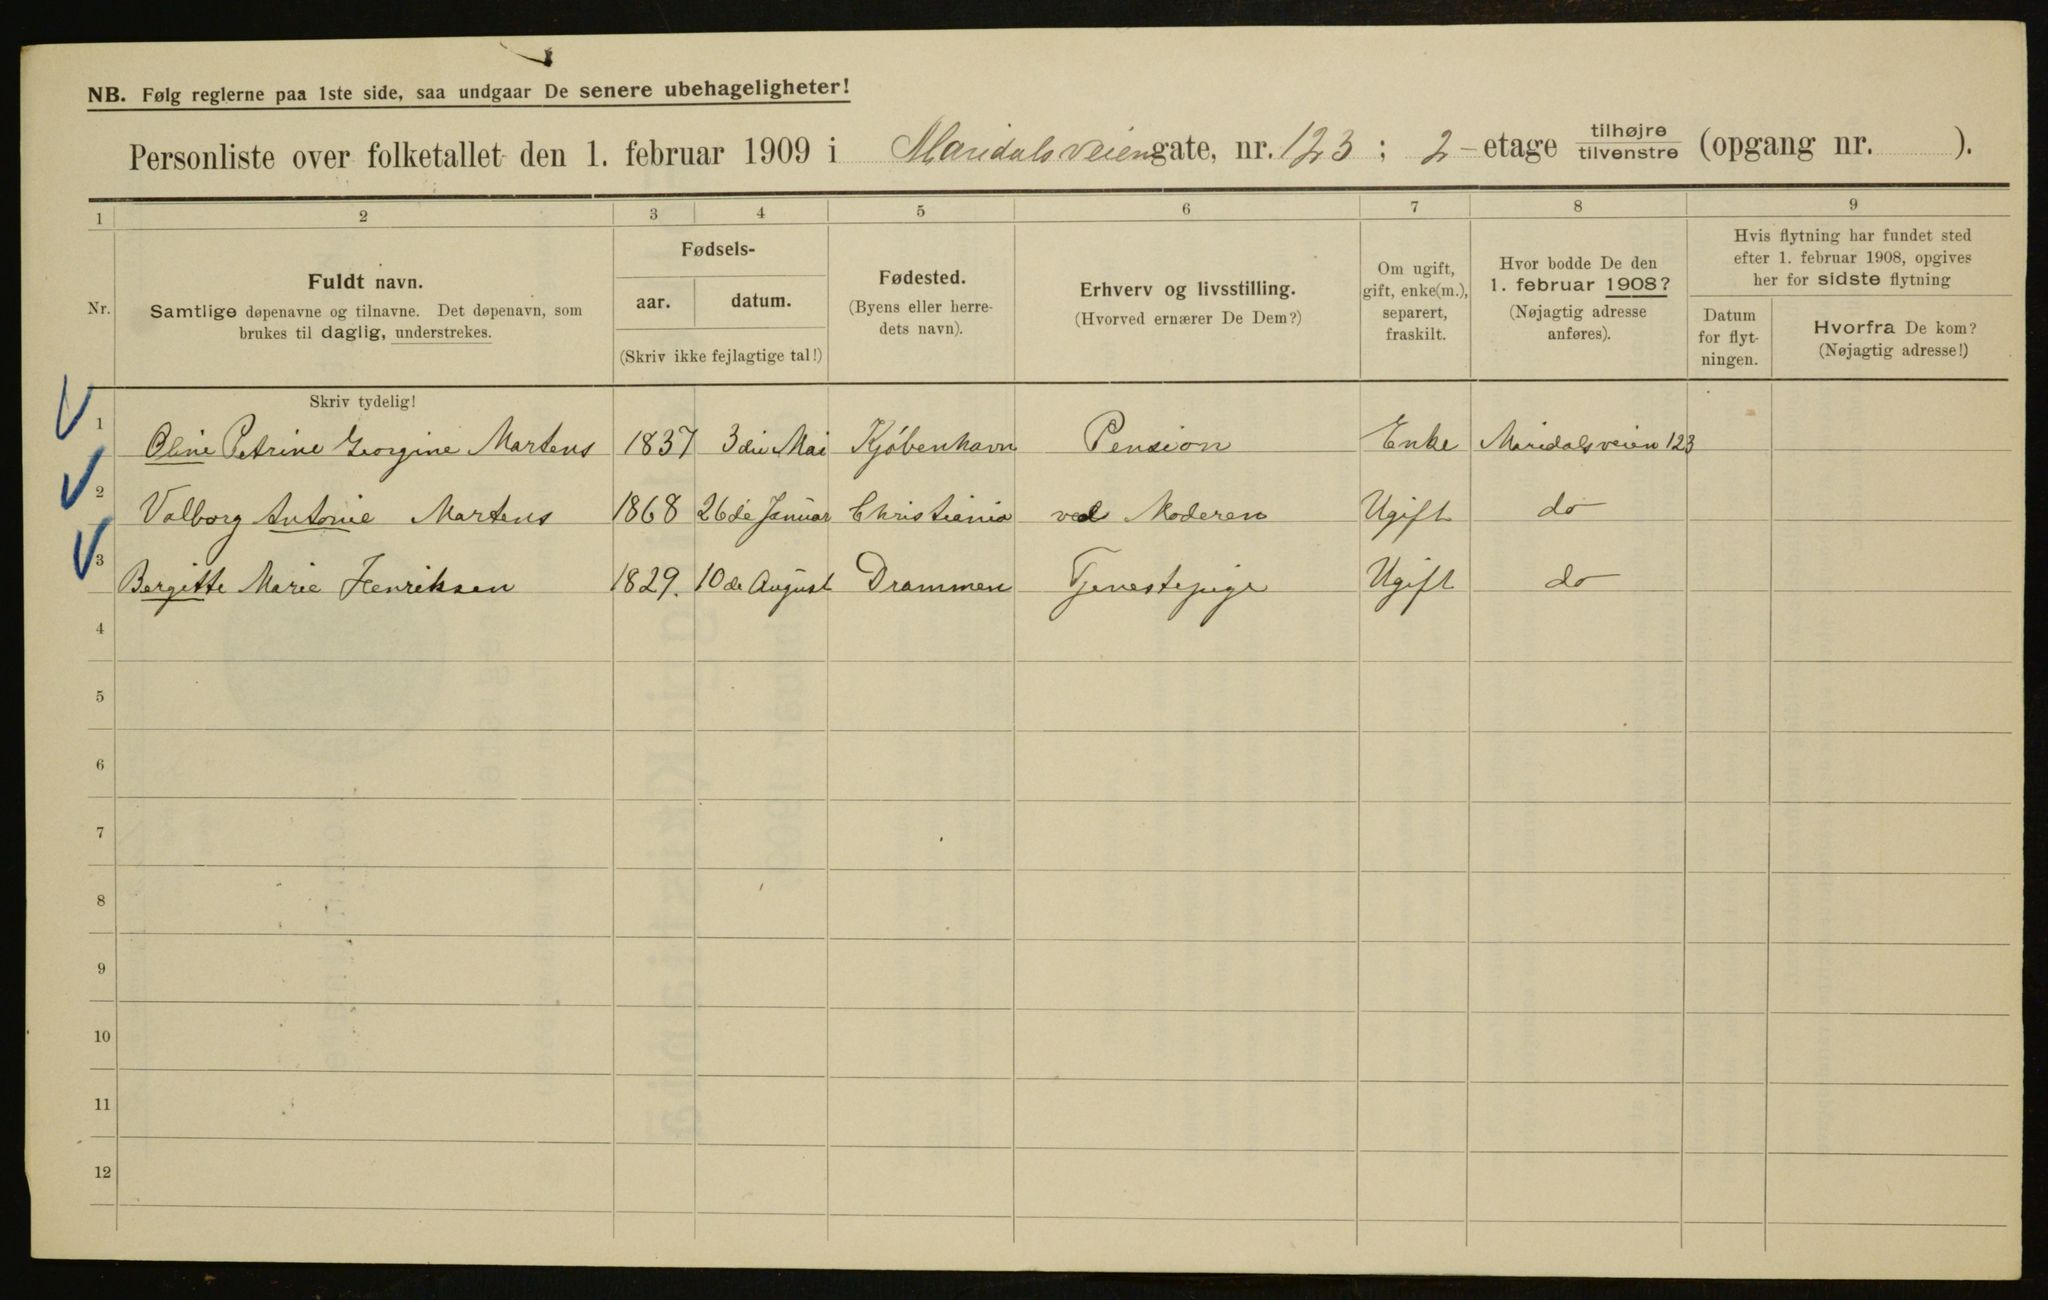 NB. Følg reglerne paa 1ste side, saa undgaar De senere ubehageligheter!
Personliste over folketallet den 1. februar 1909 i Maridalsveien gate, nr. 123 ; 2 - etage tilhøjre / tilvenstre (opgang nr. ).
1 2 3 4 5 6 7 8 9
Nr.
Fuldt navn.
Samtlige døpenavne og tilnavne. Det døpenavn, som
brukes til daglig, understrekes.
Fødsels-
aar. datum.
(Skriv ikke fejlagtige tal!)
Fødested.
(Byens eller herre-
dets navn).
Erhverv og livsstilling.
(Hvorved ernærer De Dem?)
Om ugift,
gift, enke(m.),
separert,
fraskilt.
Hvor bodde De den
1. februar 1908?
(Nøjagtig adresse
anføres).
Hvis flytning har fundet sted
efter 1. februar 1908, opgives
her for sidste flytning
Datum
for flyt-
ningen.
Hvorfra De kom?
(Nøjagtig adresse!)
Skriv tydelig!
1 Oline Petrine Georgine Martens 1837 3die Mai Kjøbenhavn Pension Enke Maridalsveien 123
2 Valborg Antonie Martens 1868 26de Januar Christiania ved Moderen Ugift do
3 Bergitte Marie Henriksen 1829. 10de August Drammen Tjenestepige Ugift do
4
5
6
7
8
9
10
11
12